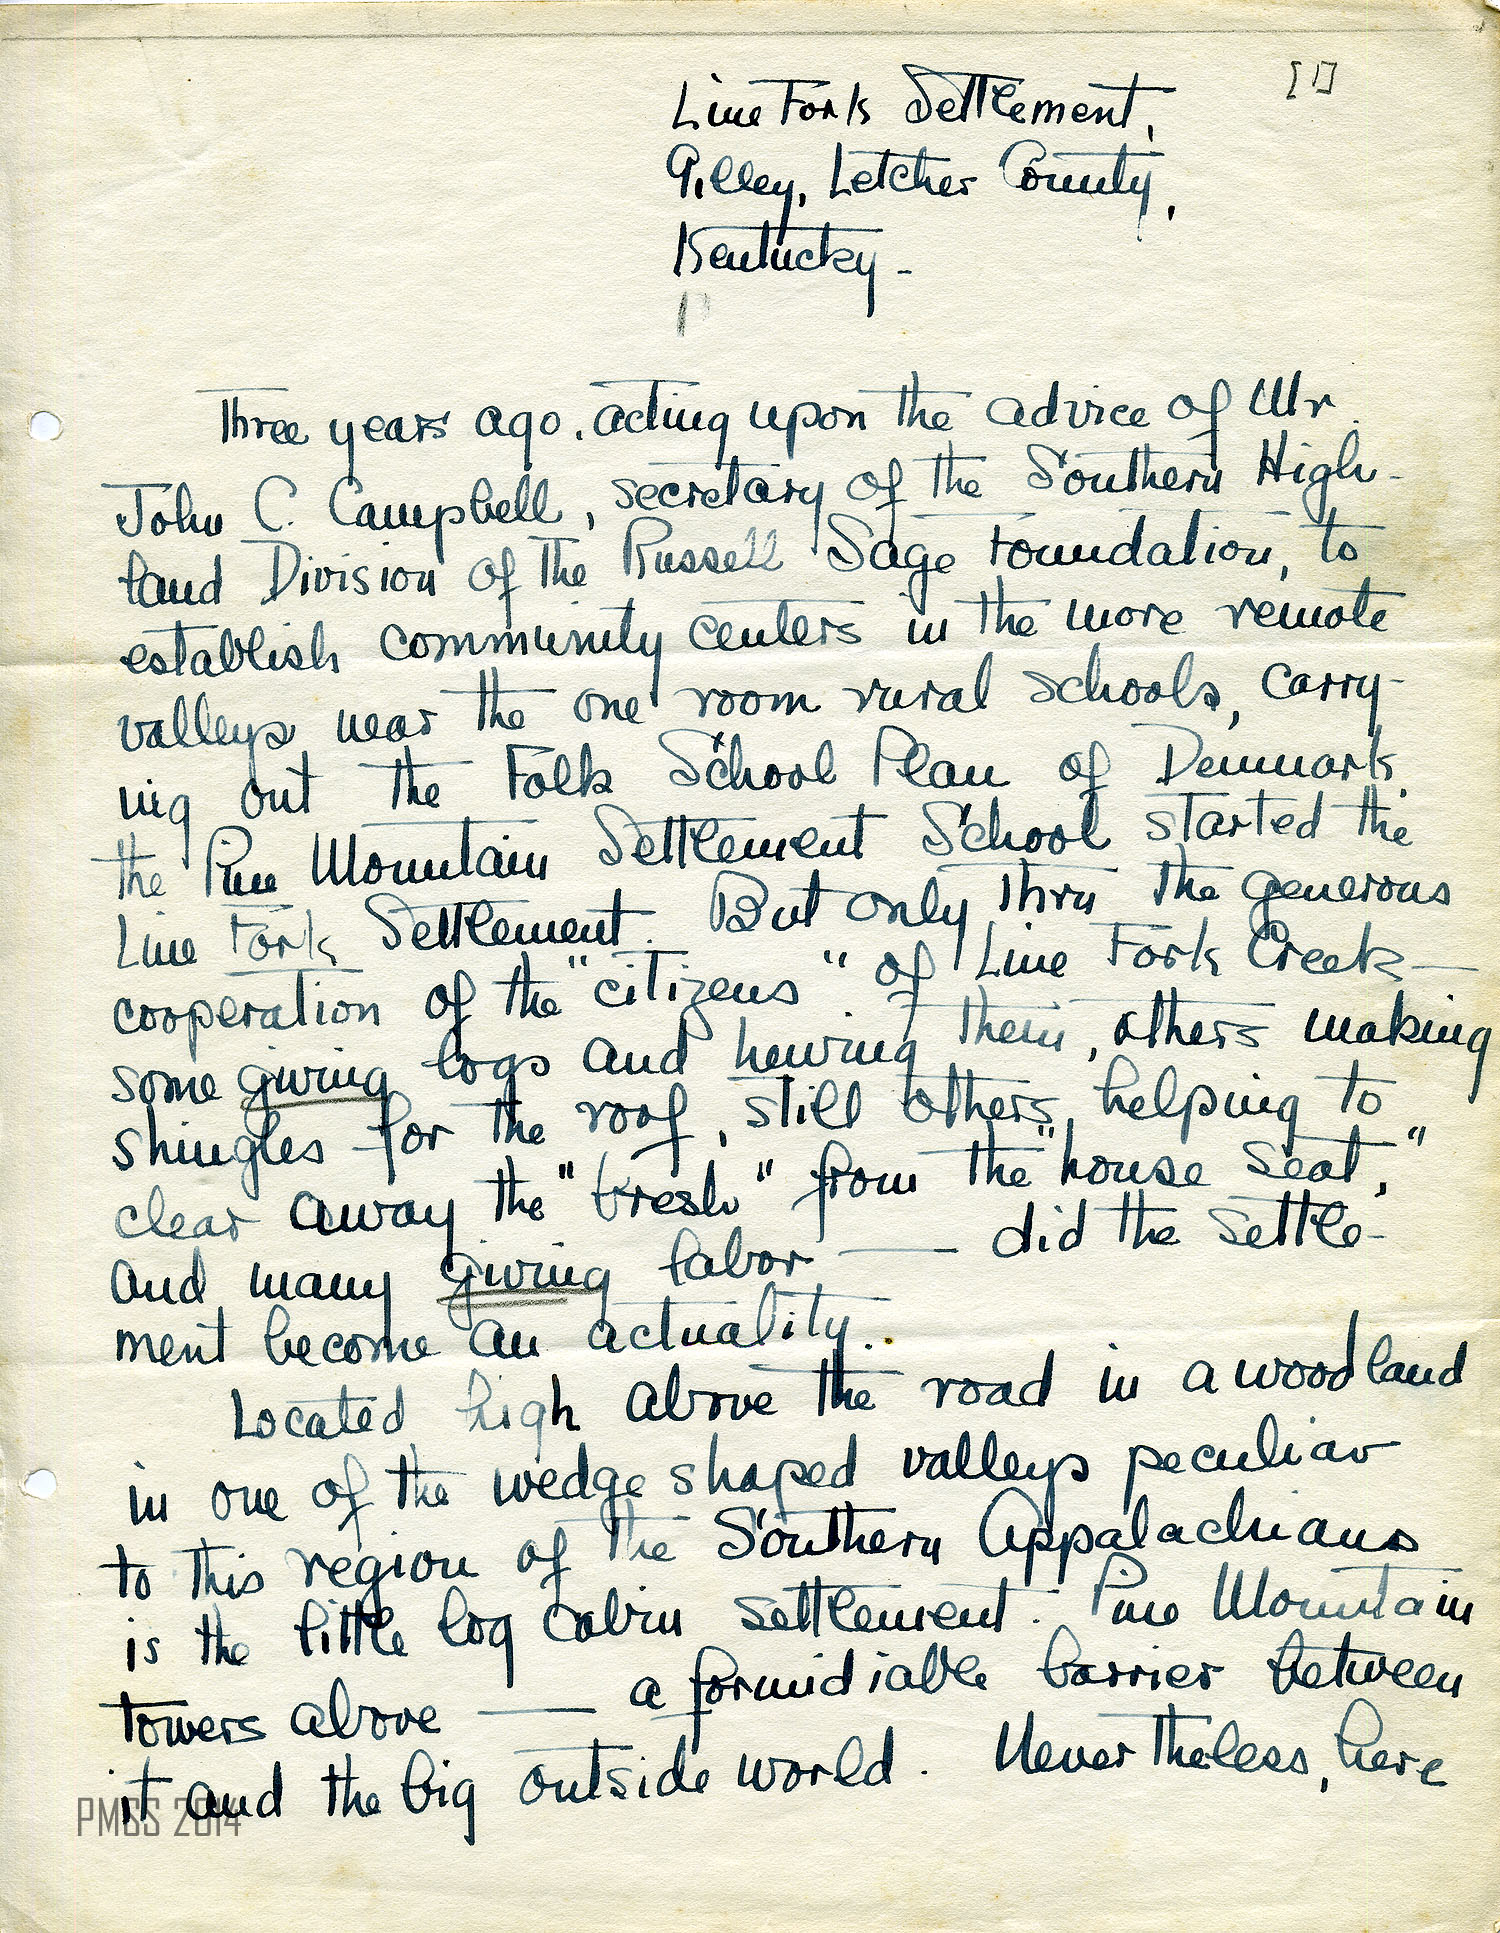 [1]
Line Fork Settlement,
Gilley, Letcher County,
Kentucky -
Three years ago, acting upon the advice of Mr.
John C. Campbell, secretary of the Southern High-
land Division of the Russell Sage Foundation, to
establish community centers in the more remote
valleys near the one room rural schools, carry-
ing out the Folk School Plan of Denmark,
the Pine Mountain Settlement School started the
Line Fork Settlement. But only thru the generous
cooperation of the "citizens" of Line Fork Creek —
some giving logs and hewing them, others making
shingles for the roof, still others, helping to
clear away the "bresh" from the "house seat,"
and many giving labor — did the settle-
ment become an actuality.
Located high above the road in a woodland
in one of the wedge shaped valleys peculiar
to this region of the Southern Appalachians
is the little log cabin settlement. Pine Mountain
towers above — a formidiable barrier between
it and the big outside world. Nevertheless, here
PMSS 2014